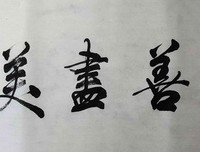 善盡美